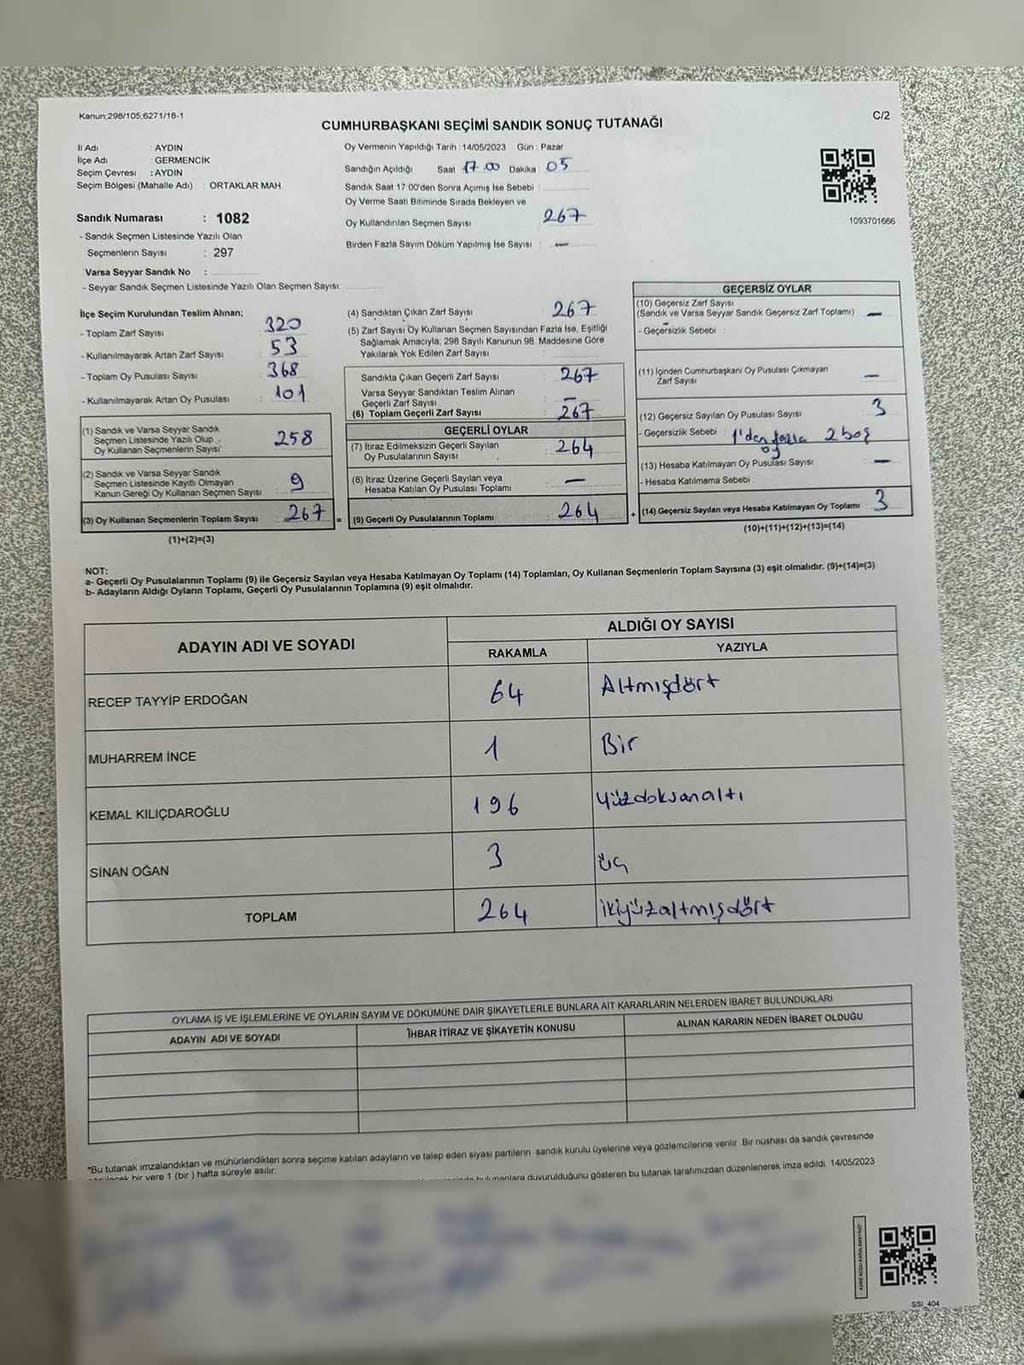 Kanun:298/105,6271/18-1
C/2
CUMHURBAŞKANI SEÇİMİ SANDIK SONUÇ TUTANAĞI
İl Adı : AYDIN
İlçe Adı : GERMENCİK
Seçim Çevresi : AYDIN
Seçim Bölgesi (Mahalle Adı) : ORTAKLAR MAH.
Sandık Numarası : 1082
- Sandık Seçmen Listesinde Yazılı Olan
Seçmenlerin Sayısı : 297
Varsa Seyyar Sandık No :
- Seyyar Sandık Seçmen Listesinde Yazılı Olan Seçmen Sayısı:
Oy Vermenin Yapıldığı Tarih : 14/05/2023 Gün : Pazar
Sandığın Açıldığı Saat 17.00 Dakika : 05
Sandık Saat 17.00'den Sonra Açımış İse Sebebi :
Oy Verme Saati Bitiminde Sırada Bekleyen ve
Oy Kullandırılan Seçmen Sayısı : 267
Birden Fazla Sayım Döküm Yapılmış İse Sayısı : —
1093701666
İlçe Seçim Kurulundan Teslim Alınan;
- Toplam Zarf Sayısı : 320
- Kullanılmayarak Artan Zarf Sayısı : 53
- Toplam Oy Pusulası Sayısı : 368
- Kullanılmayarak Artan Oy Pusulası : 101
(1) Sandık ve Varsa Seyyar Sandık
Seçmen Listesinde Yazılı Olup
Oy Kullanan Seçmenlerin Sayısı 258
(2) Sandık ve Varsa Seyyar Sandık
Seçmen Listesinde Kayıtlı Olmayan
Kanun Gereği Oy Kullanan Seçmen Sayısı 9
(3) Oy Kullanan Seçmenlerin Toplam Sayısı 267 =
(1)+(2)=(3)
(4) Sandıktan Çıkan Zarf Sayısı : 267
(5) Zarf Sayısı Oy Kullanan Seçmen Sayısından Fazla İse, Eşitliği
Sağlamak Amacıyla, 298 Sayılı Kanunun 98. Maddesine Göre
Yakılarak Yok Edilen Zarf Sayısı :
Sandıkta Çıkan Geçerli Zarf Sayısı : 267
Varsa Seyyar Sandıktan Teslim Alınan
Geçerli Zarf Sayısı : —
(6) Toplam Geçerli Zarf Sayısı : 267
GEÇERLİ OYLAR
(7) İtiraz Edilmeksizin Geçerli Sayılan
Oy Pusulalarının Sayısı : 264
(8) İtiraz Üzerine Geçerli Sayılan veya
Hesaba Katılan Oy Pusulası Toplamı : —
(9) Geçerli Oy Pusulalarının Toplamı : 264 +
GEÇERSİZ OYLAR
(10) Geçersiz Zarf Sayısı
(Sandık ve Varsa Seyyar Sandık Geçersiz Zarf Toplamı) : —
- Geçersizlik Sebebi :
(11) İçinden Cumhurbaşkanı Oy Pusulası Çıkmayan
Zarf Sayısı : —
(12) Geçersiz Sayılan Oy Pusulası Sayısı : 3
- Geçersizlik Sebebi : 1'den fazla oy 2 boş
(13) Hesaba Katılmayan Oy Pusulası Sayısı : —
- Hesaba Katılmama Sebebi :
(14) Geçersiz Sayılan veya Hesaba Katılmayan Oy Toplamı : 3
(10)+(11)+(12)+(13)=(14)
NOT:
a- Geçerli Oy Pusulalarının Toplamı (9) ile Geçersiz Sayılan veya Hesaba Katılmayan Oy Toplamı (14) Toplamları, Oy Kullanan Seçmenlerin Toplam Sayısına (3) eşit olmalıdır. (9)+(14)=(3)
b- Adayların Aldığı Oyların Toplamı, Geçerli Oy Pusulalarının Toplamına (9) eşit olmalıdır.
ADAYIN ADI VE SOYADI
ALDIĞI OY SAYISI
RAKAMLA YAZIYLA
RECEP TAYYİP ERDOĞAN 64 Altmışdört
MUHARREM İNCE 1 Bir
KEMAL KILIÇDAROĞLU 196 yüzdoksanaltı
SİNAN OĞAN 3 üç
TOPLAM 264 ikiyüzaltmışdört
OYLAMA İŞ VE İŞLEMLERİNE VE OYLARIN SAYIM VE DÖKÜMÜNE DAİR ŞİKAYETLERLE BUNLARA AİT KARARLARIN NELERDEN İBARET BULUNDUKLARI
ADAYIN ADI VE SOYADI İHBAR İTİRAZ VE ŞİKAYETİN KONUSU ALINAN KARARIN NEDEN İBARET OLDUĞU
*Bu tutanak imzalandıktan ve mühürlendikten sonra seçime katılan adayların ve talep eden siyasi partilerin sandık kurulu üyelerine veya gözlemcilerine verilir. Bir nüshası da sandık çevresinde
bir yere 1 (bir ) hafta süreyle asılır.
duyurulduğunu gösteren bu tutanak tarafımızdan düzenlenerek imza edildi. 14/05/2023
SSI_404